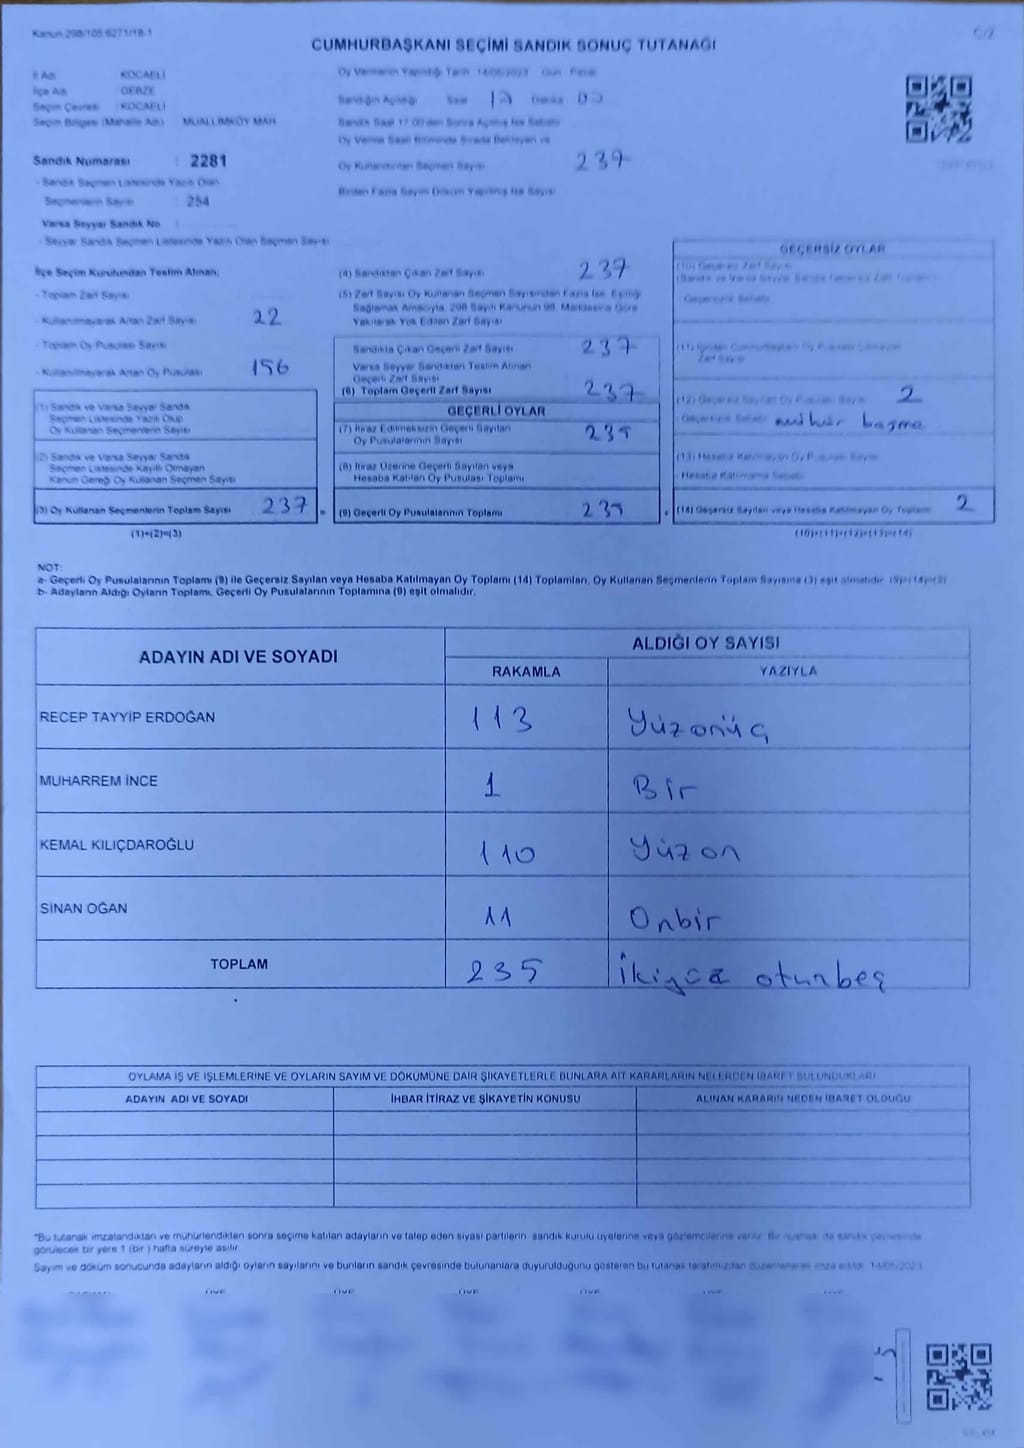 Kanun 298/105 6271/18-1
C/2
CUMHURBAŞKANI SEÇİMİ SANDIK SONUÇ TUTANAĞI
İl Adı KOCAELİ
İlçe Adı GEBZE
Seçim Çevresi : KOCAELİ
Seçim Bölgesi (Mahalle Adı) MUALLİMKÖY MAH
Sandık Numarası : 2281
- Sandık Seçmen Listesinde Yazılı Olan
Seçmenlerin Sayısı : 254
Varsa Seyyar Sandık No
- Seyyar Sandık Seçmen Listesinde Yazılı Olan Seçmen Sayısı
Oy Vermenin Yapıldığı Tarih 14/05/2023 Gün Pazar
Sandığın Açıldığı Saat Dakika
Sandık Saat 17.00'den Sonra Açılmış İse Sebebi
Oy Verme Saati Bitiminde Sırada Bekleyen ve
Oy Kullandırılan Seçmen Sayısı 237
Birden Fazla Sayım Döküm Yapılmış İse Sayısı
İlçe Seçim Kurulundan Teslim Alınan;
- Toplam Zarf Sayısı
- Kullanılmayarak Artan Zarf Sayısı 22
- Toplam Oy Pusulası Sayısı
- Kullanılmayarak Artan Oy Pusulası 156
(1) Sandık ve Varsa Seyyar Sandık
Seçmen Listesinde Yazılı Olup
Oy Kullanan Seçmenlerin Sayısı
(2) Sandık ve Varsa Seyyar Sandık
Seçmen Listesinde Kayıtlı Olmayan
Kanun Gereği Oy Kullanan Seçmen Sayısı
(3) Oy Kullanan Seçmenlerin Toplam Sayısı 237
(1)+(2)=(3)
(4) Sandıktan Çıkan Zarf Sayısı 237
(5) Zarf Sayısı Oy Kullanan Seçmen Sayısından Fazla İse, Eşitliği
Sağlamak Amacıyla, 298 Sayılı Kanunun 98. Maddesine Göre
Yakılarak Yok Edilen Zarf Sayısı
Sandıkta Çıkan Geçerli Zarf Sayısı 237
Varsa Seyyar Sandıktan Teslim Alınan
Geçerli Zarf Sayısı
(6) Toplam Geçerli Zarf Sayısı 237
GEÇERLİ OYLAR
(7) İtiraz Edilmeksizin Geçerli Sayılan
Oy Pusulalarının Sayısı 235
(8) İtiraz Üzerine Geçerli Sayılan veya
Hesaba Katılan Oy Pusulası Toplamı
= (9) Geçerli Oy Pusulalarının Toplamı 235
GEÇERSİZ OYLAR
(10) Geçersiz Zarf Sayısı
(Sandık ve Varsa Seyyar Sandık Geçersiz Zarf Toplamı)
- Geçersizlik Sebebi
Zarf Sayısı
(12) Geçersiz Sayılan Oy Pusulası Sayısı 2
Geçersizlik Sebebi mühür basma
(13) Hesaba Katılmayan Oy Pusulası Sayısı
- Hesaba Katılmama Sebebi
+ (14) Geçersiz Sayılan veya Hesaba Katılmayan Oy Toplamı 2
(10)+(11)+(12)+(13)=(14)
NOT:
a- Geçerli Oy Pusulalarının Toplamı (9) ile Geçersiz Sayılan veya Hesaba Katılmayan Oy Toplamı (14) Toplamları, Oy Kullanan Seçmenlerin Toplam Sayısına (3) eşit olmalıdır. (9)+(14)=(3)
b- Adayların Aldığı Oyların Toplamı, Geçerli Oy Pusulalarının Toplamına (9) eşit olmalıdır.
ADAYIN ADI VE SOYADI
ALDIĞI OY SAYISI
RAKAMLA YAZIYLA
RECEP TAYYİP ERDOĞAN 113 Yüzonüç
MUHARREM İNCE 1 Bir
KEMAL KILIÇDAROĞLU 110 Yüzon
SİNAN OĞAN 11 Onbir
TOPLAM 235 İkiyüz oturbeş
OYLAMA İŞ VE İŞLEMLERİNE VE OYLARIN SAYIM VE DÖKÜMÜNE DAİR ŞİKAYETLERLE BUNLARA AİT KARARLARIN NELERDEN İBARET BULUNDUKLARI
ADAYIN ADI VE SOYADI İHBAR İTİRAZ VE ŞİKAYETİN KONUSU ALINAN KARARIN NEDEN İBARET OLDUĞU
"Bu tutanak imzalandıktan ve mühürlendikten sonra seçime katılan adayların ve talep eden siyasi partilerin sandık kurulu üyelerine veya gözlemcilerine verilir. Bir nüshası da sandık çevresinde
görülecek bir yere 1 (bir ) hafta süreyle asılır.
Sayım ve döküm sonucunda adayların aldığı oyların sayılarını ve bunların sandık çevresinde bulunanlara duyurulduğunu gösteren bu tutanak tarafımızdan düzenlenerek imza edildi. 14/05/2023